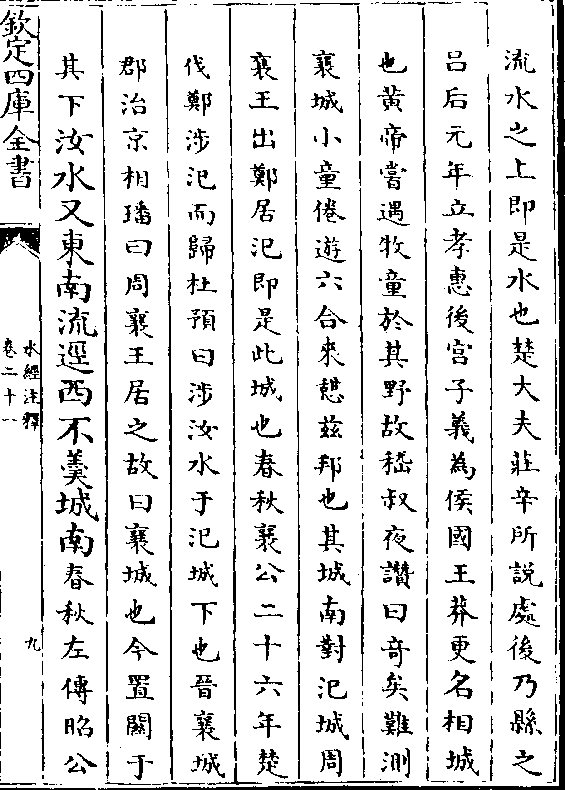 流水之上即是水也楚大夫莊辛所說處後乃縣之
呂后元年立孝惠後宮子義為侯國王莽更名相城
也黄帝嘗遇牧童於其野故嵇叔夜讚曰奇矣難測
襄城小童倦遊六合來憩兹邦也其城南對汜城周
襄王出鄭居汜即是此城也春秋襄公二十六年楚
伐鄭涉汜而歸杜預曰涉汝水于汜城下也晉襄城
郡治京相璠曰周襄王居之故曰襄城也今置關于
其下汝水又東南流逕西不羹城南春秋左傳昭公
欽定四庫全書
水經注釋
卷二十一
九